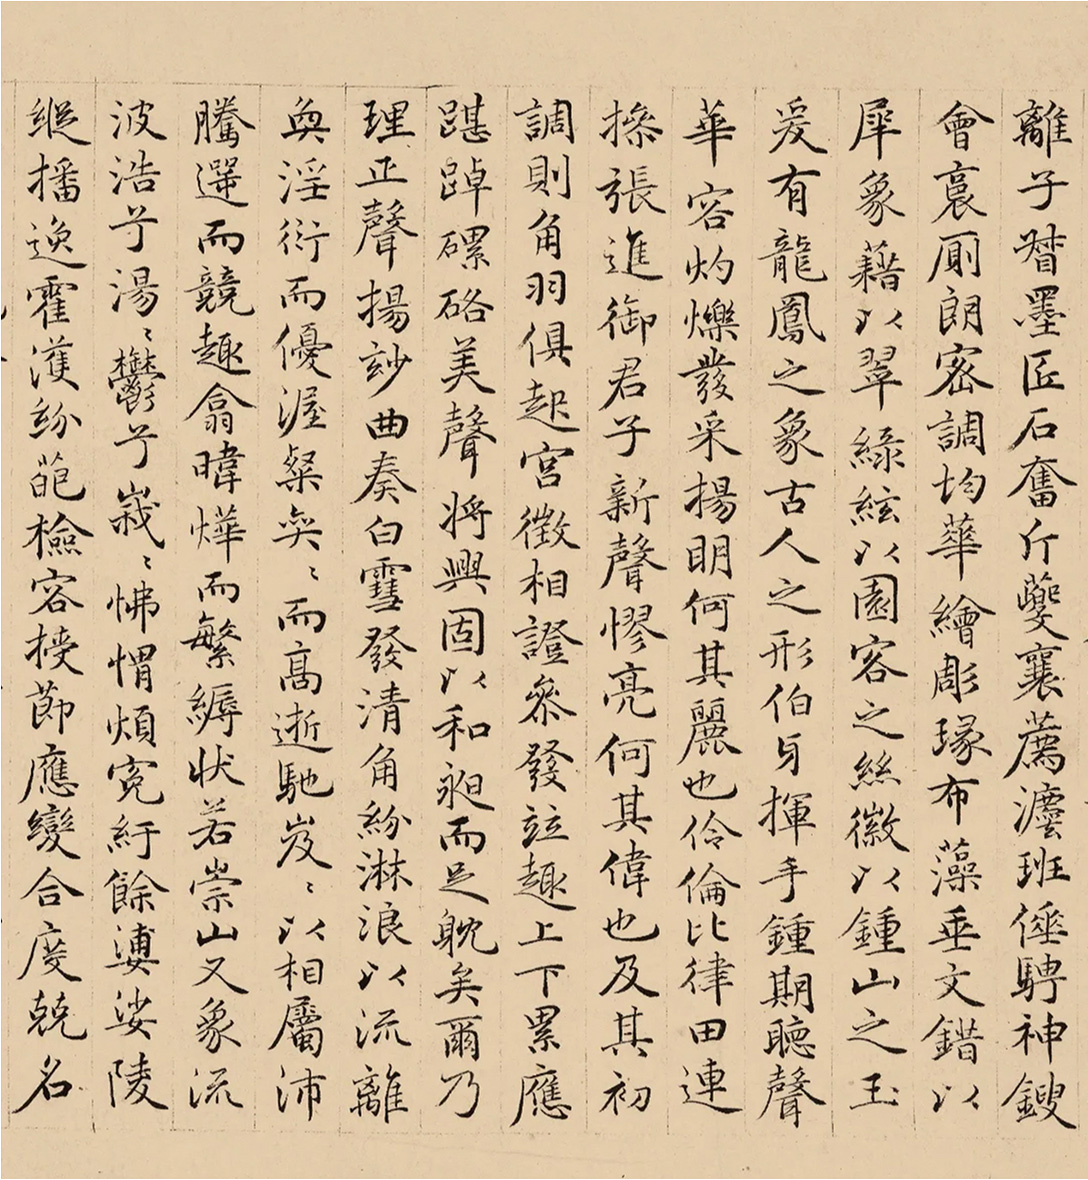 離子督墨匠石奮斤夔襄薦灋班倕騁神鎪
會裛厠朗密調均華繪彫瑑布藻垂文錯以
犀象藉以翠綠絃以園客之絲徽以鍾山之玉
爰有龍鳳之象古人之形伯牙揮手鍾期聽聲
華容灼爍發采揚明何其麗也伶倫比律田連
操張進御君子新聲憀亮何其偉也及其初
調則角羽俱起宮徵相證參發竝趣上下累應
踸踔磥硌美聲將興固以和昶而足躭矣爾乃
理正聲揚妙曲奏白雪發清角紛淋浪以流離
奐淫衍而優渥粲奕〻而高逝馳岌〻以相屬沛
騰遌而競趣翕暐燁而繁縟狀若崇山又象流
波浩兮湯〻鬱兮峩〻怫愲煩寃紆餘婆娑陵
縱播逸霍濩紛葩檢容授節應變合度兢名